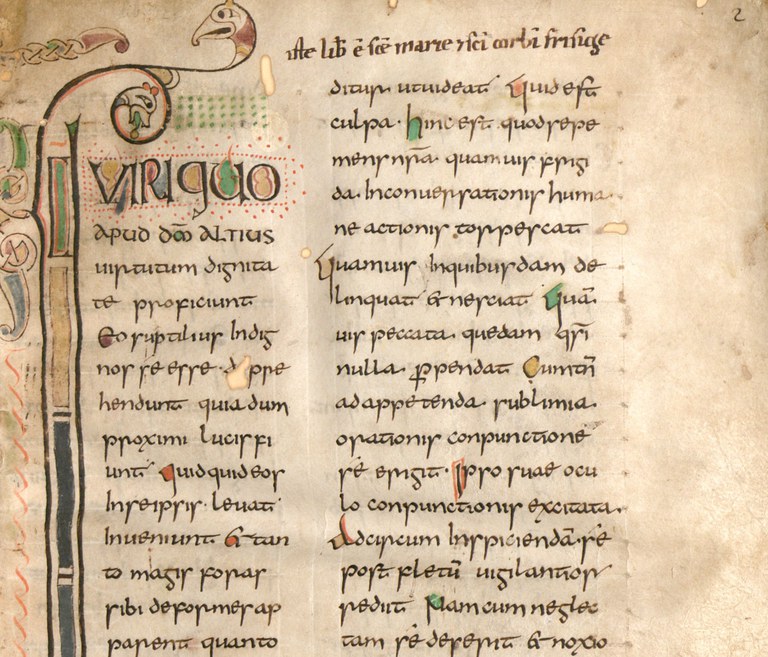 2
iste lib̄ ē sc̄e marie ⁊ sc̄i corbī frisige
VIRI QUO
APUD DM̄ ALTIUS
virtutum dignita
te proficiunt
Eo suptilius Indig
nos se esse depre
hendunt quia dum
proximi lucis fi
unt quidquid eos
In seipsis levat
Inveniunt & tan
to magis foras
sibi deformes ap
parent quanto
ditur ut videat Quid est
culpa. hinc est quod sepe
mens nr̄a quamvis frigi
da. In conversationis huma
ne actionis torpescat
Quamvis In quibusdam de
linquat & nesciat Quā
vis peccata. quedam qr̄i
nulla. p̱pendat Cum tn̄
ad appetenda. sublimia.
orationis conpunctione
se erigit. Ipso suae ocu
lo conpunctionis excitata.
Ad circum Inspicienda. se
post fletū vigilantior
rediit Nam cum neglec
tam se deserit & noxio